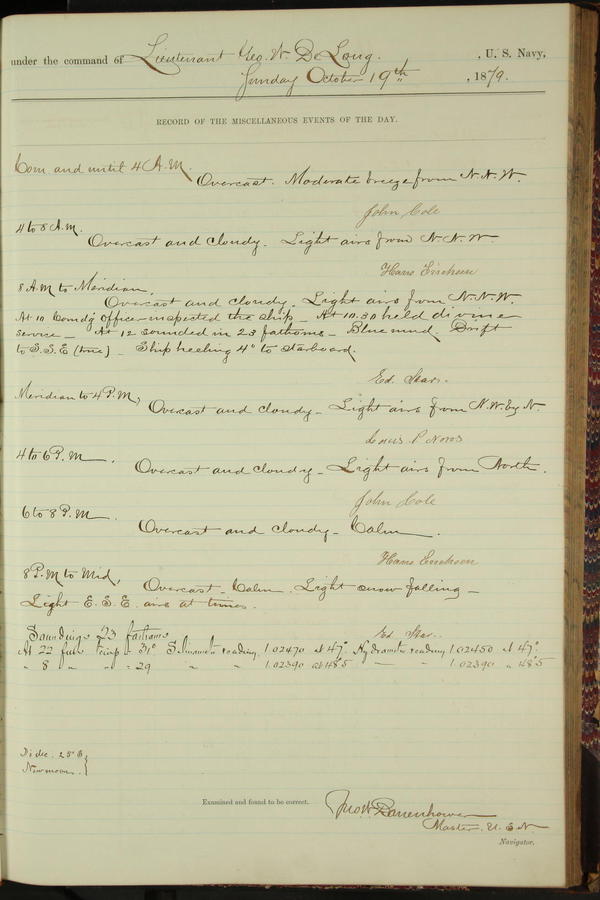 under the command of Lieutenant Geo. W. De Long. , U. S. Navy,
Sunday October 19th , 1879.
RECORD OF THE MISCELLANEOUS EVENTS OF THE DAY.
Com. and until 4 A.M.
Overcast. Moderate breeze from N.N.W.
John Cole
4 to 8 A.M.
Overcast and cloudy. Light airs from N.N.W.
Hans Erichsen
8 A.M to Meridian,
Overcast and cloudy. Light airs from N.N.W.
At 10 Comd'g Officer inspected the ship – At 10.30 held divine
service – At 12 sounded in 23 fathoms – Blue mud. Drift
to S.S.E (true) – Ship heeling 4° to starboard.
Ed. Star.
Meridian to 4 P.M,
Overcast and cloudy – Light airs from N.W. by N.
Louis P Noros
4 to 6 P.M.
Overcast and cloudy – Light airs from North.
John Cole
6 to 8 P.M.
Overcast and cloudy – Calm.
Hans Erichsen
8 P.M. to Mid,
Overcast – Calm. Light snow falling –
Light E.S.E. airs at times.
Ed Star..
Soundings 23 fathoms
At 22 temp = 31° reading 1.02470 at 47° Hydrometer reading 1.02450 at 47°
" 8 " " = 29 " " 1.02390 at 48°5 " " 1.02390 " 48°5
New moon.
Examined and found to be correct.
Jno W Danenhower
Master, U.S.N.
Navigator.